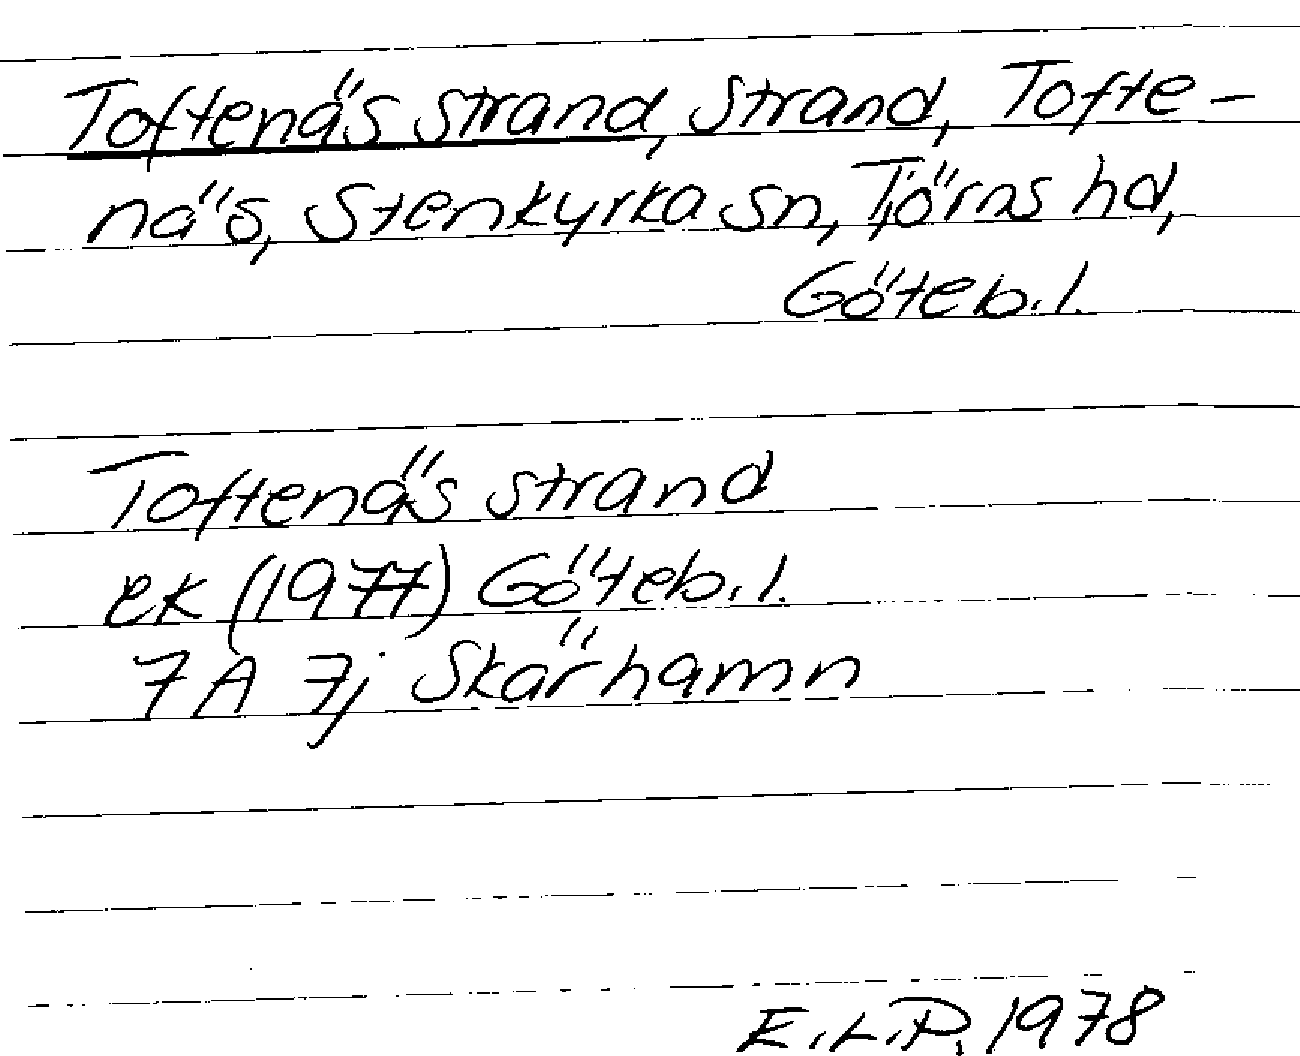 Toftenäs strand, strand, Tofte-
näs, Stenkyrka sn, Tjörns hd,
Göteb.l.
Toftenäs strand
ek (1977) Göteb.l.
7A 7j Skärhamn
E.L.P. 1978